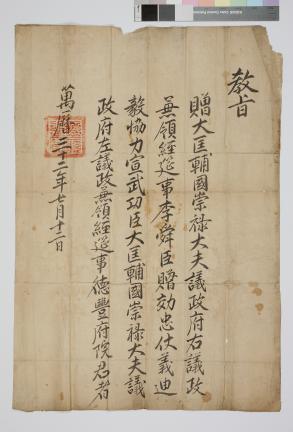 敎旨
贈大匡輔國崇祿大夫議政府右議政
兼領經筵事李舜臣贈効忠仗義迪
毅協力宣武功臣大匡輔國崇祿大夫議
政府左議政兼領經筵事德豐府院君者
萬曆三十二年七月十二日